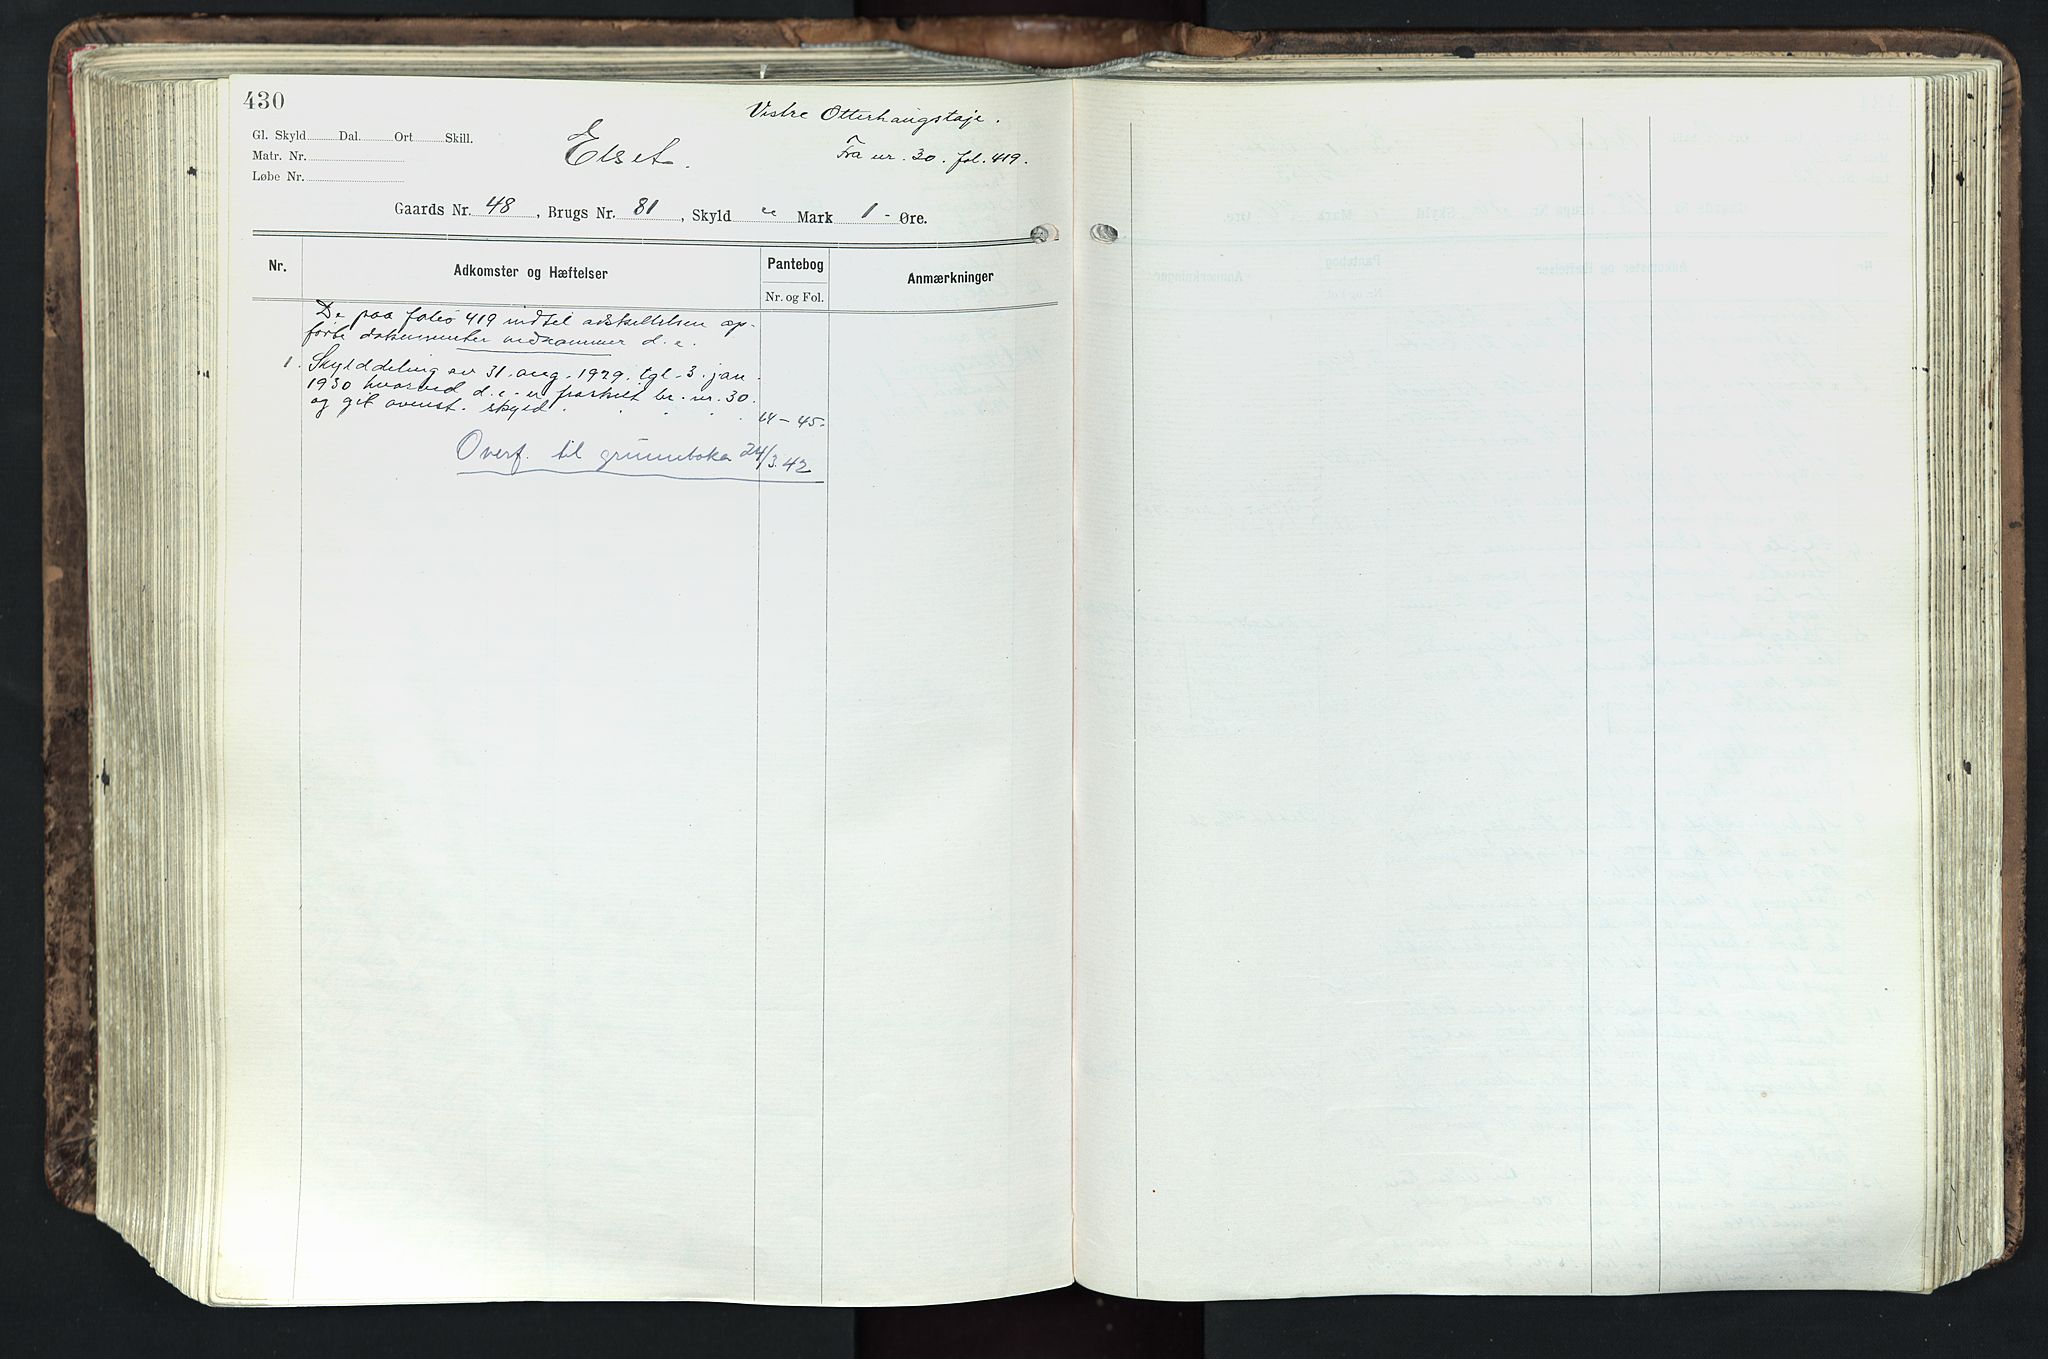 430
Vistre Otterhaugstøje.
Gl. Skyld Dal. Ort Skill.
Elset.
Matr. Nr.
Fra nr. 30. fol. 419.
Løbe Nr.
Gaards Nr. 48, Brugs Nr. 81, Skyld " Mark 1 - Øre.
Nr. Adkomster og Hæftelser Pantebog Anmærkninger
Nr. og Fol.
De paa folio 419 indtil adskillelsen op-
førte dokumenter vedkommer d. e.
1. Skylddeling av 31. aug. 1929. tgl. 3. jan.
1930 hvorved d. e. er fraskilt br. nr. 30.
og git ovenst. skyld. 14 - 45.
Overf. til grunnboka 24/3.42